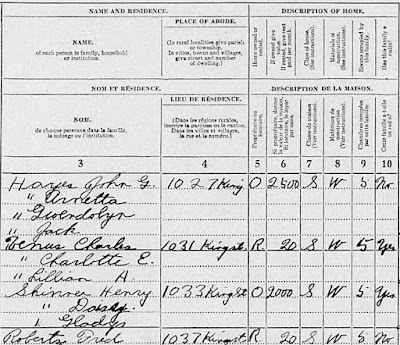 NAME AND RESIDENCE.
DESCRIPTION OF HOME.
NAME.
of each person in family, household
or institution.
PLACE OF ABODE.
(In rural localities give parish
or township.
In cities, towns and villages,
give street and number
of dwelling.)
Home owned or
rented.
If owned give
value.
If rented, give rent
paid per month.
Class of house.
(See instructions).
Materials of
construction.
(See instructions).
Rooms occupied by
this family.
Has this family a
NOM ET RÉSIDENCE.
DESCRIPTION DE LA MAISON.
NOM.
de chaque personne dans la famille,
le ménage ou l'institution.
LIEU DE RÉSIDENCE.
(Dans les régions rurales,
inscrire la paroisse ou le canton.
Dans les villes et villages,
la rue et le numéro
Propriétaire ou
locataire.
Classe de maison
(Voir instructions).
Matériaux de
construction.
(Voir instructions).
Chambres occupées
par cette famille.
Cette famille a-t-elle
3 4 5 6 7 8 9 10
Hayes John G. 1027 King O 2500 S W 5 No
" Arnetta
" Gwendolyn
" Jack
Venus Charles 1031 King st R 20 S W 5 Yes
" Charlotte E.
" Lillian A.
Skinner Henry 1033 King St O 2000 S W 5 Yes
" Daisy
" Gladys
Roberts Fred 1037 King st R 20 S W 5 No